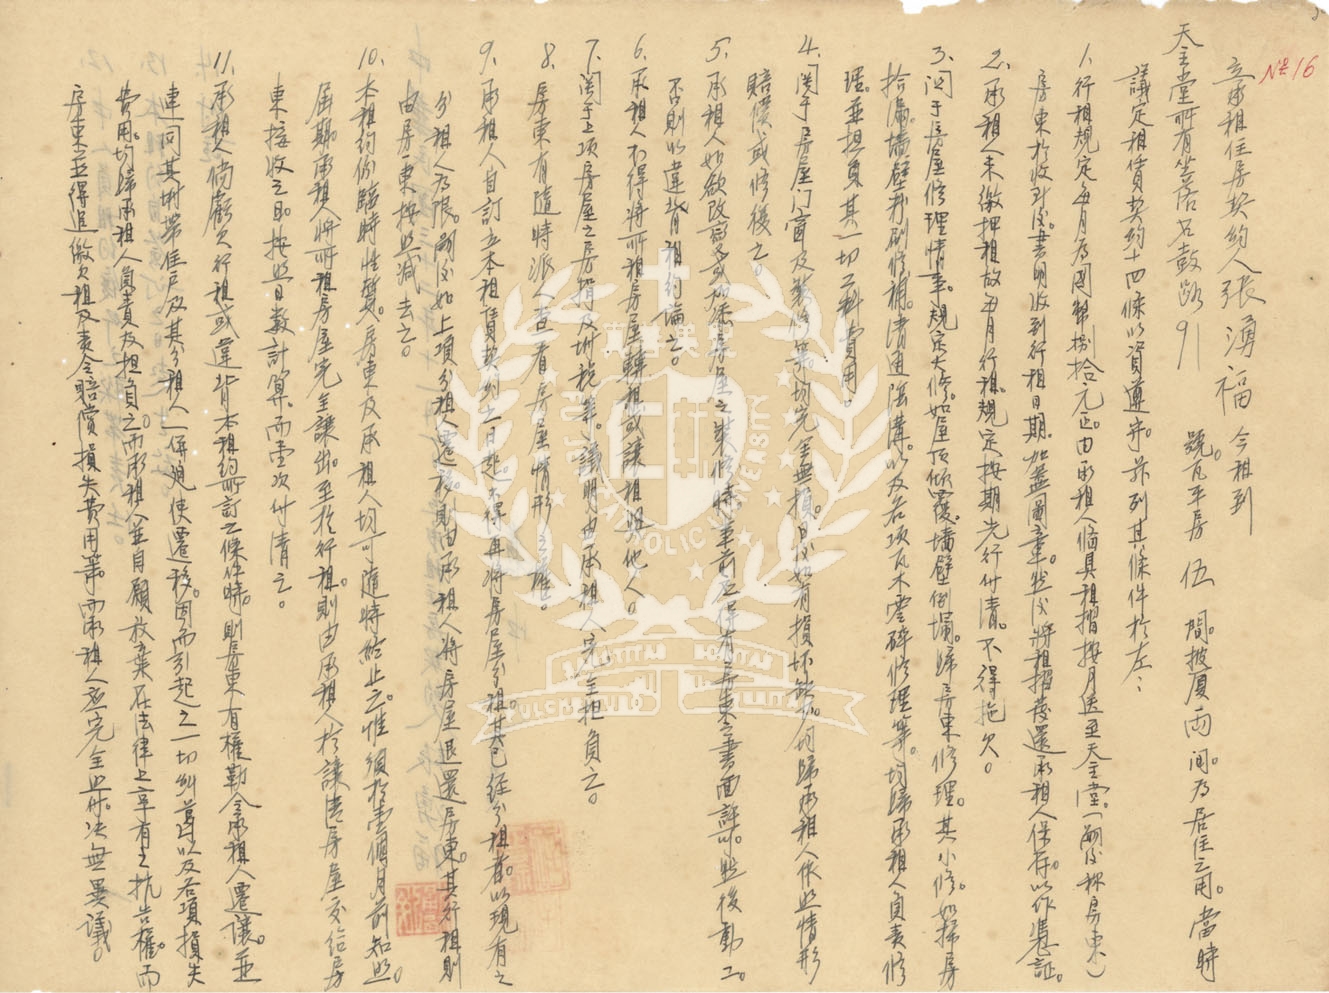 № 16
立承租住房契約人張湧福 今租到
天主堂所有坐落石鼓路91 號瓦平房 伍 間。披厦 兩 间。为居住之用。當時
議定租賃契約十四條以資遵守。茲列其條件於左：
1. 行租規定每月为國幣捌拾元正。由承租人備具租摺按月送至天主堂。(嗣後称房東)
房東於收到後。書明收到行租日期。加蓋圖章。然後將租摺發還承租人保存。以作憑証。
2. 承租人未繳押租故每月行租。規定按期先行付清。不得拖欠。
3. 関于房屋修理情事。規定大修。如屋頂傾覆。墻壁倒塌。歸房東修理。其小修。如掃房
拾漏。墻壁粉刷修補。清通陰溝。以及各項瓦木零碎修理等。均歸承租人負責修
理。並担負其一切工料費用。
4. 関于房屋门窗及裝修等均完全無損。日後如有損坏缺少。均歸承租人依照情形
賠償或修復之。
5. 承租人如欲改变或加添房屋之裝修時。事前应得有房東之書面許可。然後動工。
否則以違背租約論之。
6. 承租人不得將所租房屋轉租或讓租與他人。
7. 関于上項房屋之房捐及附税等。議明由承租人完全担負之。
8. 房東有隨時派人查看房屋情形之權。
9. 承租人自訂立本租賃契約之日起。不得再將房屋分租。其已経分租者。以現有之
分租人为限。嗣後如上項分租人遷移。則由承租人將房屋退還房東。其行租則
由房東按照減去之。
10. 本租約係臨時性質。房東及承租人均可隨時終止之。惟須於壹個月前知照。
屆期。承租人將所租房屋完全讓出。至於行租。則由承租人於讓清房屋交给房
東接收之日。按照日數計算。而壹次付清之。
11. 承租人倘虧欠行租或違背本租約所訂之條件時。則房東有權勒令承租人遷讓。並
連同其附帶住戶及其分租人一併迫使遷移。因而引起之一切糾葛以及各項損失
費用。均歸承租人負責及担負之。而承租人並自願放棄在法律上享有之抗告權。而
房東並得追繳欠租及責令賠償損失費用等。而承租人应完全照办。决無異議。